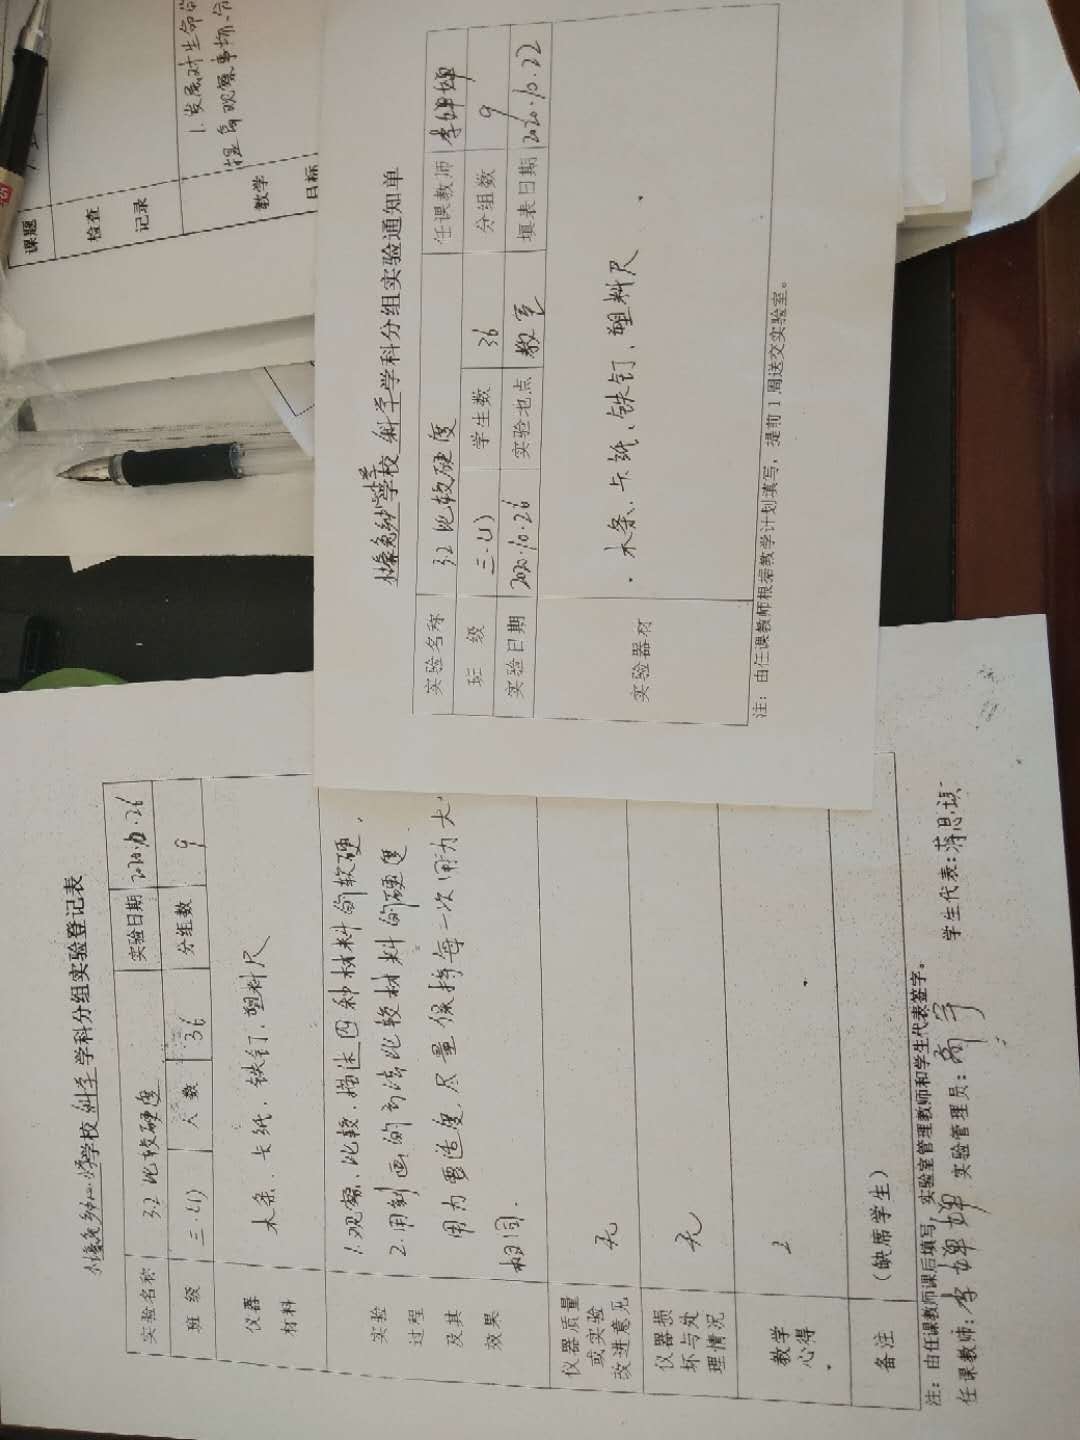 课题
检查
记录
教学
目标
1.发展对生命
提高观察事物
学校 科学 学科分组实验通知单
实验名称 3.2 比较硬度 任课教师 李婵婵
班 级 三.(1) 学生数 36 分组数 9
实验日期 2020.10.26 实验地点 教室 填表日期 2020.10.22
实验器材 木条、卡纸、铁钉、塑料尺
注：由任课教师根据教学计划填写，提前1周送交实验室。
学校 科学 学科分组实验登记表
实验名称 3.2 比较硬度 实验日期 2020.10.26
班 级 三.(1) 人 数 36 分组数 9
仪器
材料
木条、卡纸、铁钉、塑料尺
实验
过程
及其
效果
1.观察、比较、描述四种材料的软硬.
2.用刻画的方法比较材料的硬度
用力要适度,尽量保持每一次用力大
相同.
仪器质量
或实验
改进意见
无
仪器损
坏与处
理情况
无
教学
心得
备注 （缺席学生）
注：由任课教师课后填写，实验室管理教师和学生代表签字。
任课教师：李婵婵 实验管理员： 学生代表：蒋思琪